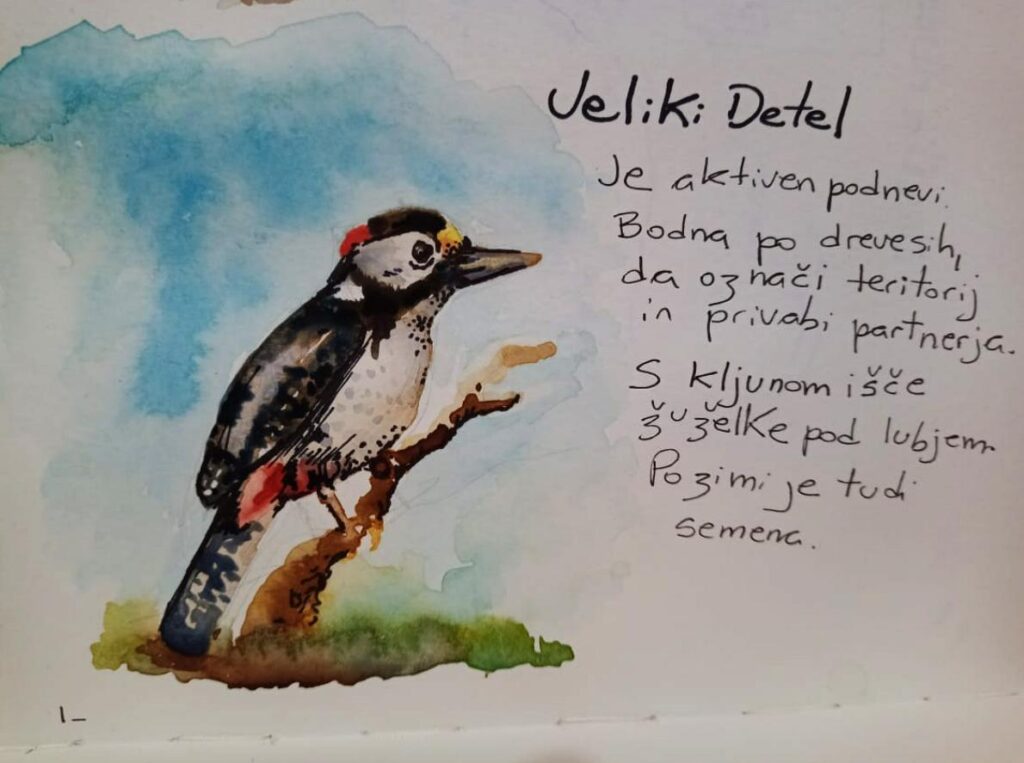 Veliki Detel
Je aktiven podnevi.
Bodna po drevesih,
da označi teritorij
in privabi partnerja.
S kljunom išče
žuželke pod lubjem.
Pozimi je tudi
semena.
1_